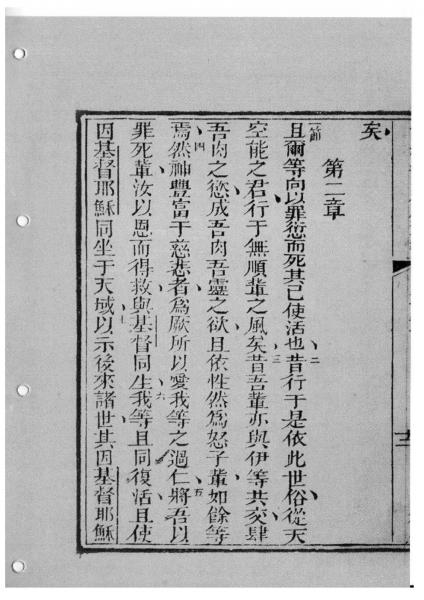 矣
第二章
一節
且爾等向以罪愆而死其已使活也二昔行于是依此世俗從天
空能之君行于無順輩之風矣三昔吾輩亦與伊等共交肆
吾肉之慾成吾肉吾靈之欲且依性然為怒子輩如餘等
焉四然神豐富于慈悲者為厥所以愛我等之過仁五將吾以
罪死輩汝以恩而得救與基督同生我等六且同復活且使
因基督耶穌同坐于天域七以示後來諸世其因基督耶穌